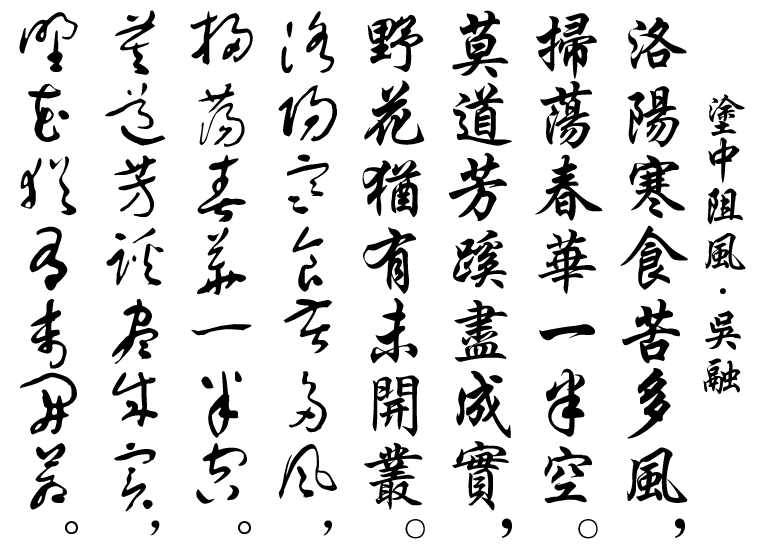 塗中阻風·吳融
洛陽寒食苦多風，
掃蕩春華一半空。
莫道芳蹊盡成實，
野花猶有未開叢。
洛陽寒食苦多風，
掃蕩春華一半空。
莫道芳蹊盡成實，
野花猶有未開叢。